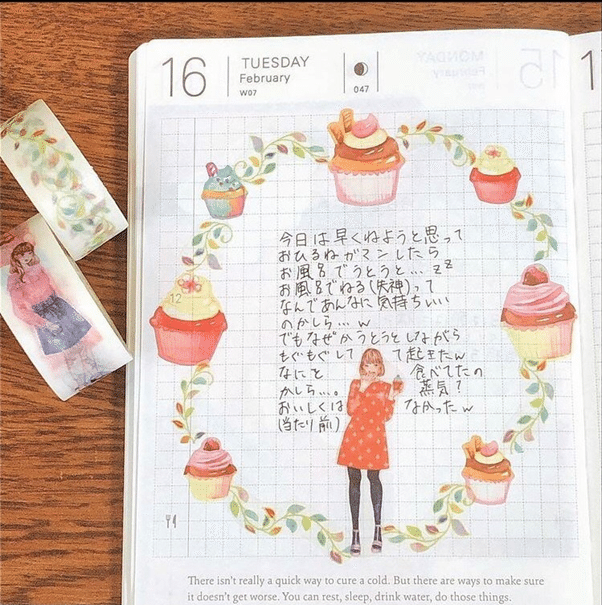 16 TUESDAY
February
W07 047
MONDAY
February
15
1
今日は早くねようと思って
おひるねガマンしたら
お風呂でうとうと…zz
お風呂でねる(失神)って
なんであんなに気持ちいい
のかしら…w
でもなぜかうとうとしながら
もぐもぐして て起きたw
なにを 食べてたの
かしら…。 蒸気?
おいしくは なかったw
(当たり前)
12
There isn't really a quick way to cure a cold. But there are ways to make sure
it doesn't get worse. You can rest, sleep, drink water, do those things.